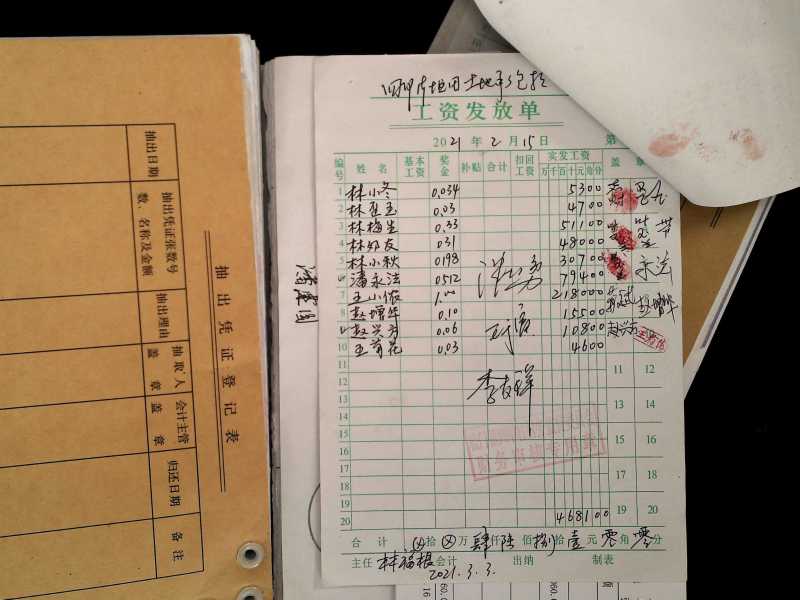 工资发放单
2021年2月15日 第
编号 姓名 基本工资 奖金 补贴 合计 扣回工资 实发工资 盖
万 千 百 十 元 角 分
1 林小冬 0.034 5300
2 林 玉 0.03 4700
3 林梅生 0.33 51100
4 林好友 031 48000
5 林小秋 0198 30700
6 潘永法 0512 79400 永法
7 王小依 1.00 218000
8 赵增华 0.10 15500 赵增华
9 赵兴方 0.06 10800 赵兴方
10 王菊花 0.03 4600
11 11 12
12
13 13 14
14
15 15 16
16
17 17 18
18
19 19 20
20 468100
李友祥
财务审核专用章
合计 ⊗拾⊗万肆仟陆佰捌拾壹元零角零分
主任 林福根 会计 出纳 制表
2021.3.3.
抽出凭证登记表
抽出日期
抽出凭证张数号数、名称及金额
抽出理由
抽取人盖章
会计主管盖章
归还日期
备注